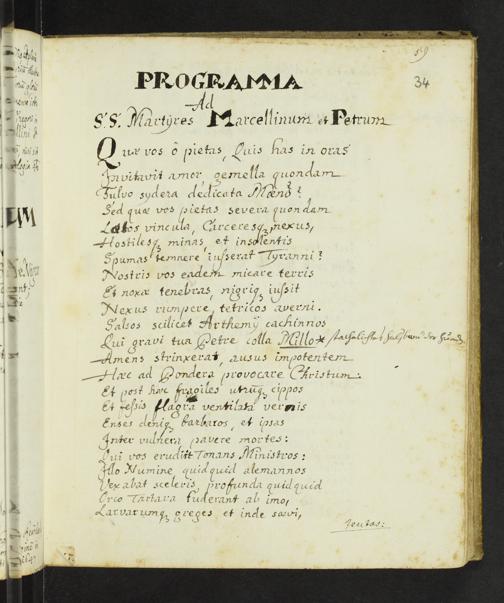 59
34
PROGRAMMA
Ad
S.S. Martÿres Marcellinum et Petrum
Quæ vos ô pietas, Quis has in oras
Invitavit amor gemella quondam
Fulvo sydera dedicata Mœno?
Sed quæ vos pietas severa quondam
Lætos vincula, Carceresq nexus,
Hostilesq minas, et insolentis
Spumas temnere iusserat Tyranni?
Nostris vos eadem micare terris
Et noxæ tenebras, nigriq iussit
Nexus rumpere, tetricos averni.
Falsos scilicet Arthemÿ cachinnos
Qui gravi tua Petre colla Millo
Amens strinxerat, ausus impotentem
Hæc ad Pondera provocare Christum.
Et post hæc fragiles utriusq cippos
Et fessis flagra ventilata vernis
Enses deniq barbaros, et ipsas
Inter vulnera pavere mortes:
Qui vos erudiit Tonans Ministros:
Illo Numine quidquid alemannos
Vexabat sceleris, profunda quidquid
Orco Tartara fuderant ab imo,
Larvarumq greges et inde sævi,